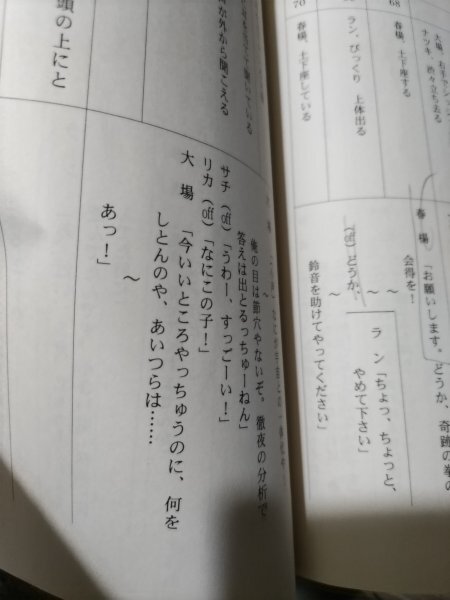 ナツキ、渋々立ち去る
68
春場、土下座する
ラン、びっくり 上体出る
70
春場、土下座している
春場「お願いします。どうか、奇跡の拳の
会得を!
ラン「ちょっ、ちょっと、
やめて下さい」
~
(off)どうか、
~
鈴音を助けてやってください」
~
外から聞こえる
頭の上にと
俺の目は節穴やないぞ。徹夜の分析で
答えは出とるっちゅーねん」
サチ(off)「うわー、すっごーい!」
リカ(off)「なにこの子!」
大場「今いいところやっちゅうのに、何を
しとんのや、あいつらは……
~
あっ!」